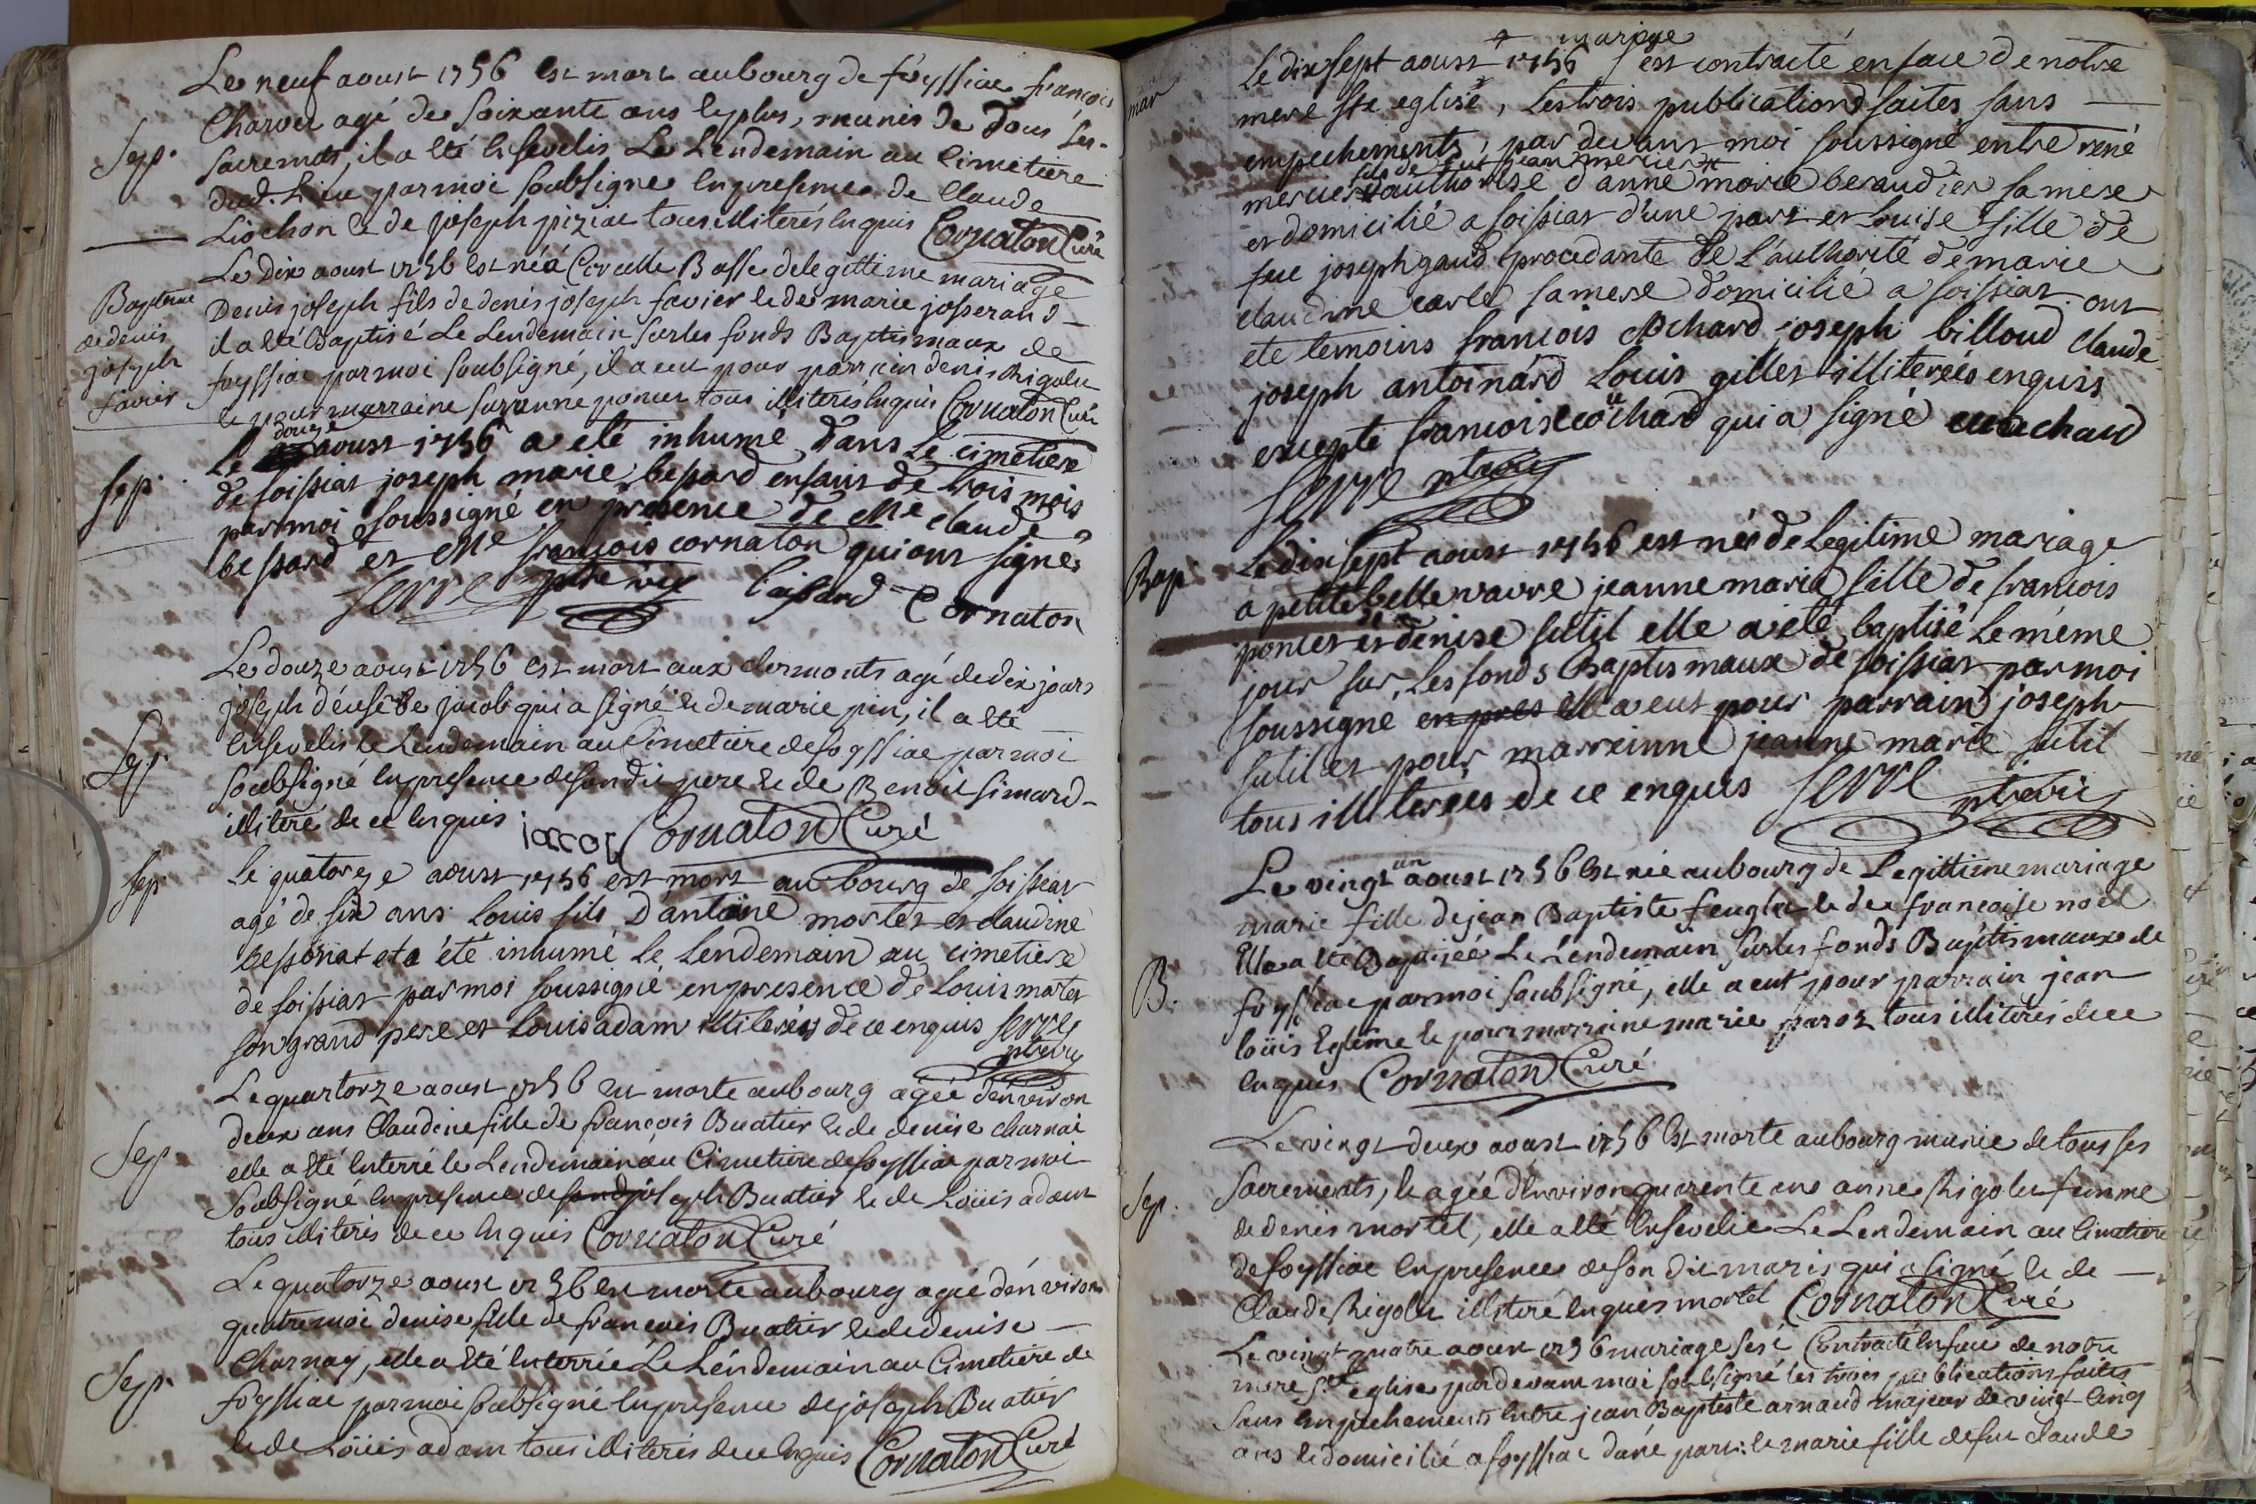 Le neuf aoust 1756 est mort au bourg de foyssiac françois
Sep.
Charvet agé de soixante ans et plus, munis de tous ses
sacremts, il a été ensevelis Le Lendemain au cimetiere
dud. Lieu par moi soubsigné en presence de Claude
Liochon & de joseph piziac tous illiterés enquis Cornaton Curé
Le Dix aoust 1756 est né a Corcelle Basse de legittime mariage
Bapteme
de denis
joseph
favier
Denis joseph fils de denis joseph favier & de marie josserand
il a été Baptisé Le Lendemain sur les fonds Baptismaux de
foyssiac par moi soubsigné, il a eut pour parrain denis Rigolet
& pour marraine suzanne poncet tous illiterés enquis Cornaton Curé
Le douze aoust 1756 a eté inhumé dans Le cimetiere
sep.
de foissiat joseph marie bessard enfant de trois mois
par moi soussigné en presence de Me claude
bessard et Me françois cornaton qui ont signé
serre ptre vic baissard Cornaton
Le douze aoust 1756 est mort aux clermonts agé de dix jours
joseph d'eusebe jacob qui a signé & de marie pin, il a été
Sep.
ensevelis le Lendemain au Cimetiere de foyssiac par moi
soubsigné en presence de son dit pere & de Benoit simard
illiteré de ce enquis jacob Cornaton Curé
sep
Le quatorze aoust 1756 est mort au bourg de foissiat
agé de six ans Louis fils D'antoine mortet et claudine
bessonat et a été inhumé le lendemain au cimetiere
de foissiat par moi soussigné en presence de Louis mortet
son grand pere et Louis adam illiterés de ce enquis serre
ptre vic
Le quartorze aoust 1756 est morte au bourg agée d'environ
deux ans Claudine fille de françois Buatier & de denise charnai
Sep.
elle a été enterré le Lendemain au Cimetiere de foyssiac par moi
Soubsigné en presence de joseph Buatier & de Loüis adam
tous illiterés de ce enquis Cornaton Curé
Le quatorze aoust 1756 est morte au bourg agée d'environ
quatre moi denise fille de françois Buatier & de denise
Sep.
Charnay, elle a été enterrée Le Lendemain au Cimetiere de
foyssiac par moi soubsigné en presence de joseph Buatier
& de Loüis adam tous illiterés de ce enquis Cornaton Curé
mariage
mar
Le dix sept aoust 1756 est contracté en face de notre
mere ste eglise, Les trois publications faites sans
empechements, par devant moi soussigné entre rené
fils de feu jean mercier
mercier authorisé d'anne marie beraudier sa mere
et domicilié a foissiat d'une part et Louise fille de
feu joseph gaud procedante de l'authorité de marie
claudine carle sa mere domicilié a foissiat ont
eté temoins francois cochard joseph billoud claude
joseph antoinard Louis gillet illiterés enquis
excepté francois couchard qui a signé couchard
serre ptre vic
Bap.
Le dix sept aoust 1756 est née de Legitime mariage
a petite belle vavre jeanne marie fille de francois
poncet et denise sutil elle a eté baptisé Le même
jour sur Les fonds Baptismaux de foissiat par moi
soussigné en pres elle a eut pour parrain joseph
sutil et pour marrainne jeanne marie sutil
tous illiterées de ce enquis serre ptre vic
Le vingt un aoust 1756 est née au bourg de Legittime mariage
marie fille de jean Baptiste feugla & de francoise noel
B.
Elle a été Baptisée Le Lendemain sur les fonds Baptismaux de
foyssiac par moi soubsigné, elle a eut pour parrain jean
loüis Egleme & pour marraine marie paroz tous illiterés de ce
enquis Cornaton Curé
Le vingt deux aoust 1756 est morte au bourg munie de tous ses
Sep.
Sacrements, & agée d'environ quarente ans anne Rigolet femme
de denis mortel, elle a été Ensevelie Le Lendemain au Cimetiere
de foyssiac en presence de son dit maris qui a signé & de
Claude Rigolet illiteré enquis mortel Cornaton Curé
Le vingt quatre aoust 1756 mariage sest Contracté en face de notre
mere ste eglise par devant moi soubsigné les trois publications faites
sans empechements entre jean Baptiste arnaud majeur de vingt cinq
ans & domicilié a foyssiac d'une part: & marie fille de feu claude